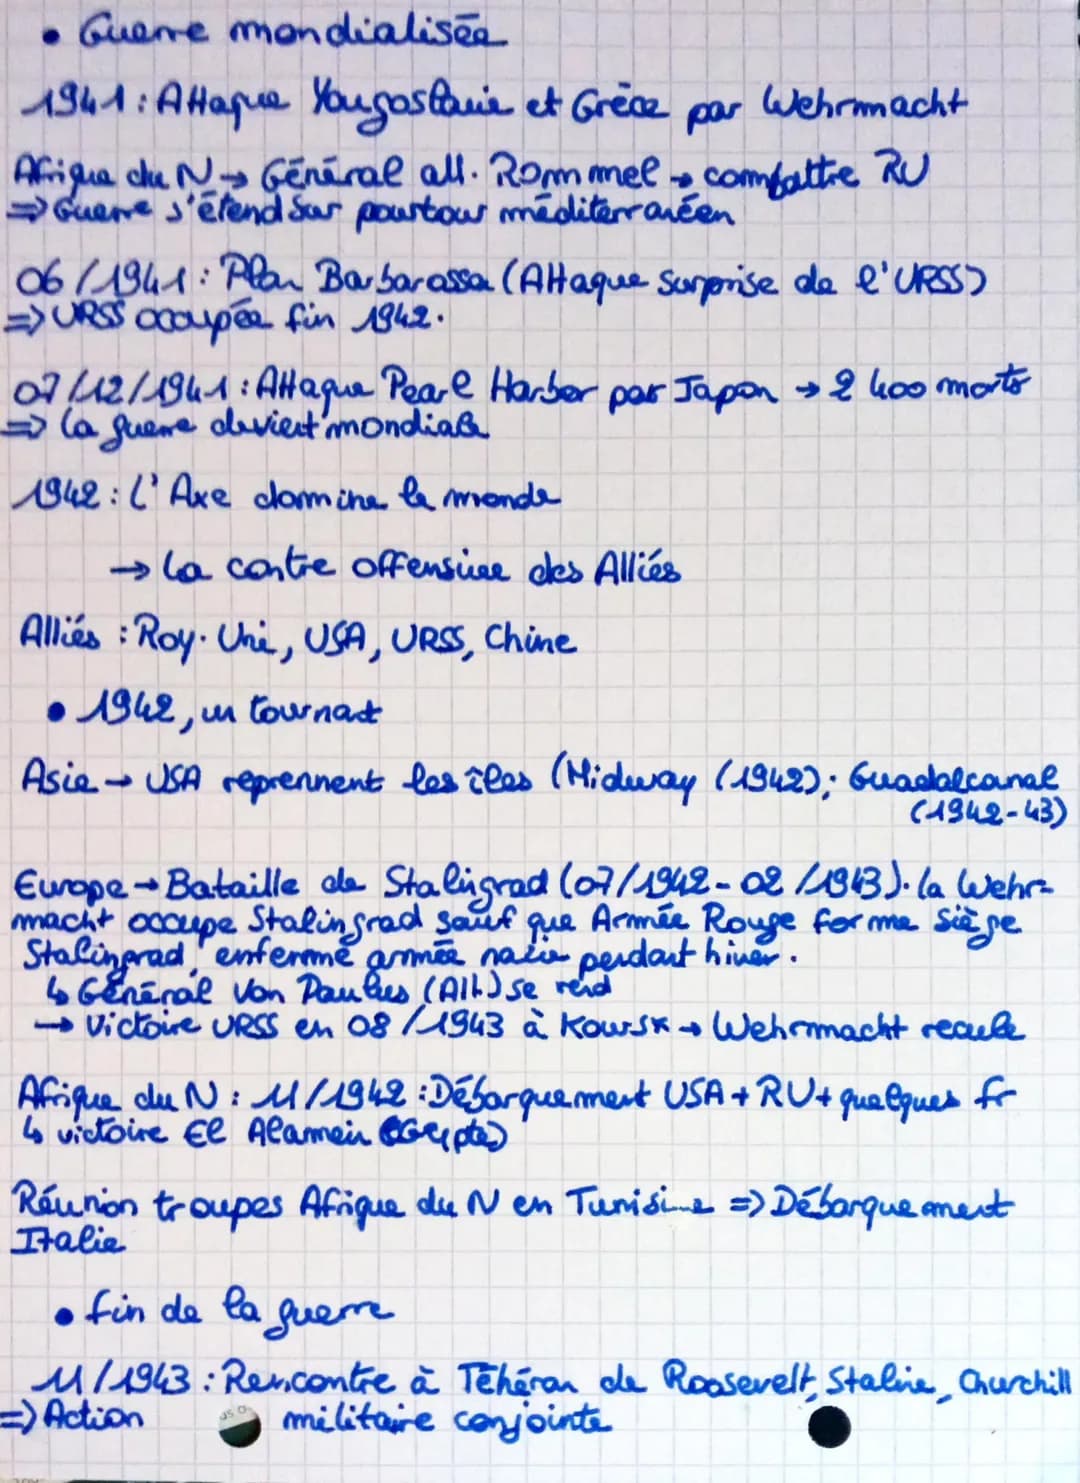 • Guerre mondialisée
1941 : Attaque Yougoslavie et Grèce par Wehrmacht
Afrique du N → Général all. Rommel → combattre RU
⇒ Guerre s'étend sur pourtour méditerranéen
06/1941 : Plan Barbarossa (Attaque surprise de l'URSS)
⇒ URSS occupée fin 1942.
07/12/1941 : Attaque Pearl Harbor par Japon → 2 400 morts
⇒ la guerre devient mondiale
1942 : L'Axe domine le monde
→ La contre offensive des Alliés
Alliés : Roy. Uni, USA, URSS, Chine
• 1942, un tournant
Asie → USA reprennent les îles (Midway (1942); Guadalcanal
(1942-43)
Europe → Bataille de Stalingrad (07/1942 - 02/1943). la Wehr-
macht occupe Stalingrad sauf que Armée Rouge forme siège
Stalingrad, enfermé armée nazie pendant hiver.
↳ Général Von Paulus (All.) se rend
→ Victoire URSS en 08/1943 à Koursk → Wehrmacht recule
Afrique du N : 11/1942 : Débarquement USA + RU + quelques fr
↳ victoire El Alamein (Egypte)
Réunion troupes Afrique du N en Tunisie ⇒ Débarquement
Italie
• fin de la guerre
11/1943 : Rencontre à Téhéran de Roosevelt, Staline, Churchill
⇒ Action militaire conjointe